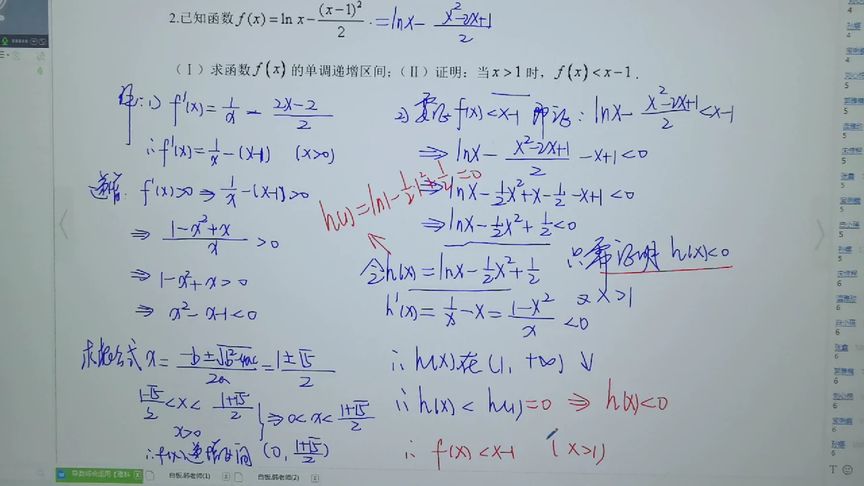 2.已知函数 f(x)=ln x-(x-1)²/2 . =lnx- (x²-2x+1)/2
(Ⅰ)求函数 f(x) 的单调递增区间;(Ⅱ)证明:当 x>1 时, f(x)<x-1.
解:1) f'(x)=1/x - (2x-2)/2
∴f'(x)=1/x-(x-1) (x>0)
递增: f'(x)>0 ⇒ 1/x-(x-1)>0
⇒ (1-x²+x)/x >0
⇒ 1-x²+x>0
⇒ x²-x-1<0
求根公式 x= (-b±√(b²-4ac))/2a = (1±√5)/2
(1-√5)/2<x< (1+√5)/2
x>0
⇒0<x<(1+√5)/2
∴f(x)递增区间 (0, (1+√5)/2)
2) 要证 f(x)<x-1 即证: lnx- (x²-2x+1)/2 <x-1
⇒ lnx- (x²-2x+1)/2 -x+1<0
⇒ lnx-1/2x²+x-1/2-x+1<0
⇒ lnx-1/2x²+1/2<0
h(1)=ln1-1/2·1²+1/2=0
令h(x)=lnx-1/2x²+1/2 只需证明 h(x)<0
h'(x)=1/x-x=(1-x²)/x <0 ∵x>1
∴h(x)在(1,+∞)↓
∴h(x)<h(1)=0 ⇒ h(x)<0
∴ f(x)<x-1 (x>1)
白板,韩老师(1)
白板,韩老师(2)